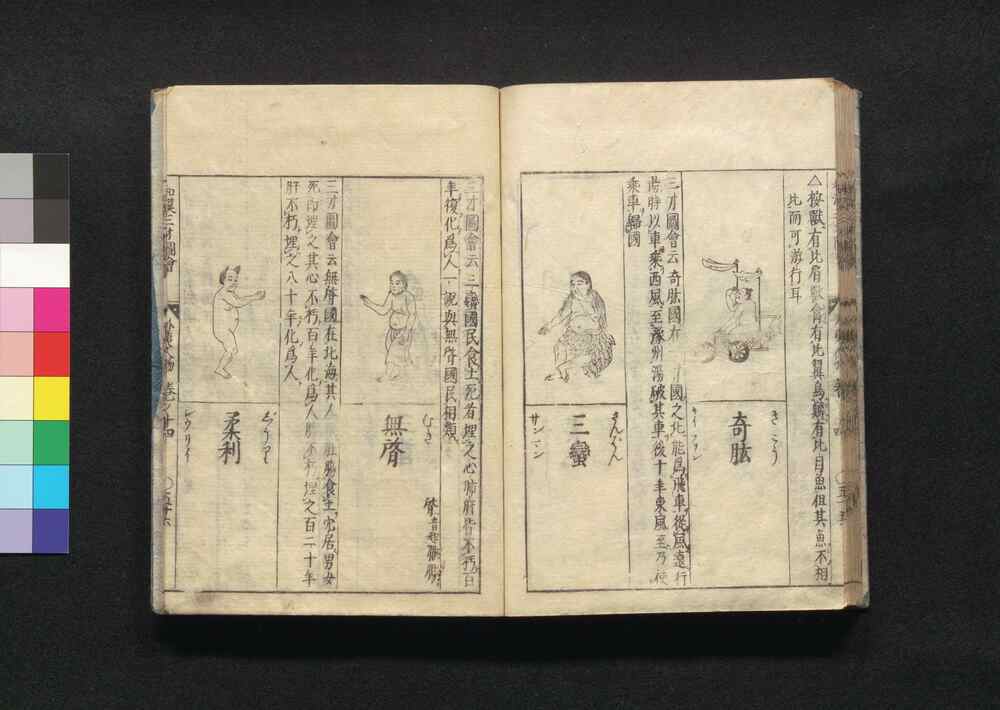 △按獸有比肩獸禽有比翼鳥魚有比目魚但其魚不相
比而可游行耳
奇肱
きこう
三才圖會云奇肱國在 國之北能爲飛車從風遠行
湯時以車乘西風至豫州湯破其車後十年東風至乃使
乘車歸國
三蠻
さんばん
サンマン
三才圖會云三蠻國民食土死者埋之心肺肝皆不朽百
年復化爲人一說與無䏿國民相類
無䏿
むけい
三才圖會云無䏿國在北海其人 肚腸食土穴居男女
死即埋之其心不朽百年化爲人 不朽埋之百二十年
肝不朽埋之八十年化爲人
柔利
じうり
和漢三才圖會
外夷人物
卷之十四